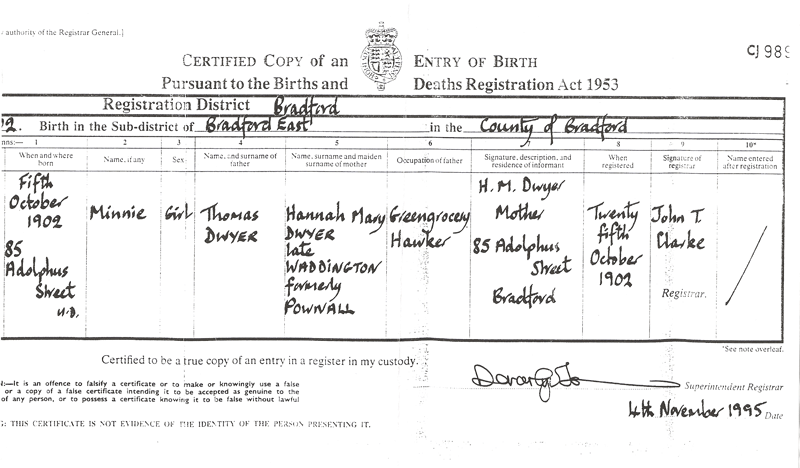 authority of the Registrar General.]
CJ 989
CERTIFIED COPY OF AN ENTRY OF BIRTH
Pursuant to the Births and Deaths Registration Act 1953
Registration District Bradford
Birth in the Sub-district of Bradford East in the County of Bradford
1 2 3 4 5 6 7 8 9 10*
When and where born
Name, if any
Sex
Name, and surname of father
Name, surname and maiden surname of mother
Occupation of father
Signature, description, and residence of informant
When registered
Signature of registrar
Name entered after registration
Fifth
October
1902
85
Adolphus
Street
U.D.
Minnie
Girl
Thomas
DWYER
Hannah Mary
DWYER
late
WADDINGTON
formerly
POWNALL
Greengrocery
Hawker
H. M. Dwyer
Mother
85 Adolphus
Street
Bradford
Twenty
fifth
October
1902
John T.
Clarke
Registrar.
*See note overleaf.
Certified to be a true copy of an entry in a register in my custody.
N:—It is an offence to falsify a certificate or to make or knowingly use a false
or a copy of a false certificate intending it to be accepted as genuine to the
of any person, or to possess a certificate knowing it to be false without lawful
Superintendent Registrar
4th November 1995 Date
G: THIS CERTIFICATE IS NOT EVIDENCE OF THE IDENTITY OF THE PERSON PRESENTING IT.